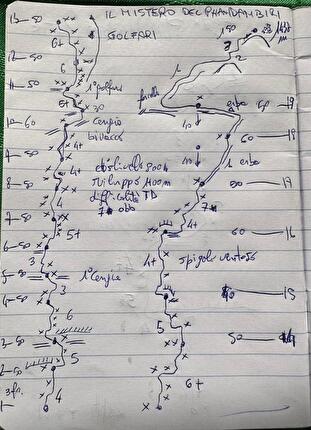 IL MISTERO DEL
GOLFARI
13-50
6+
6
11-50
1° golfari
6+
30
10-60
cengia
bivacco
9-50
4+
dislivello 800m
sviluppo 1100m
difficoltà TD
7 obb
8-50
4
7-50
5+
6-50
3
5-50
1° cengia
3
4-50
6
2-50
5
2-50
4
150
3
2
1
forcella
erba
60-19
40
60-18
40
1 erba
50-17
7
4+
60-16
4+
spigolo
40-15
5
50-14
6+